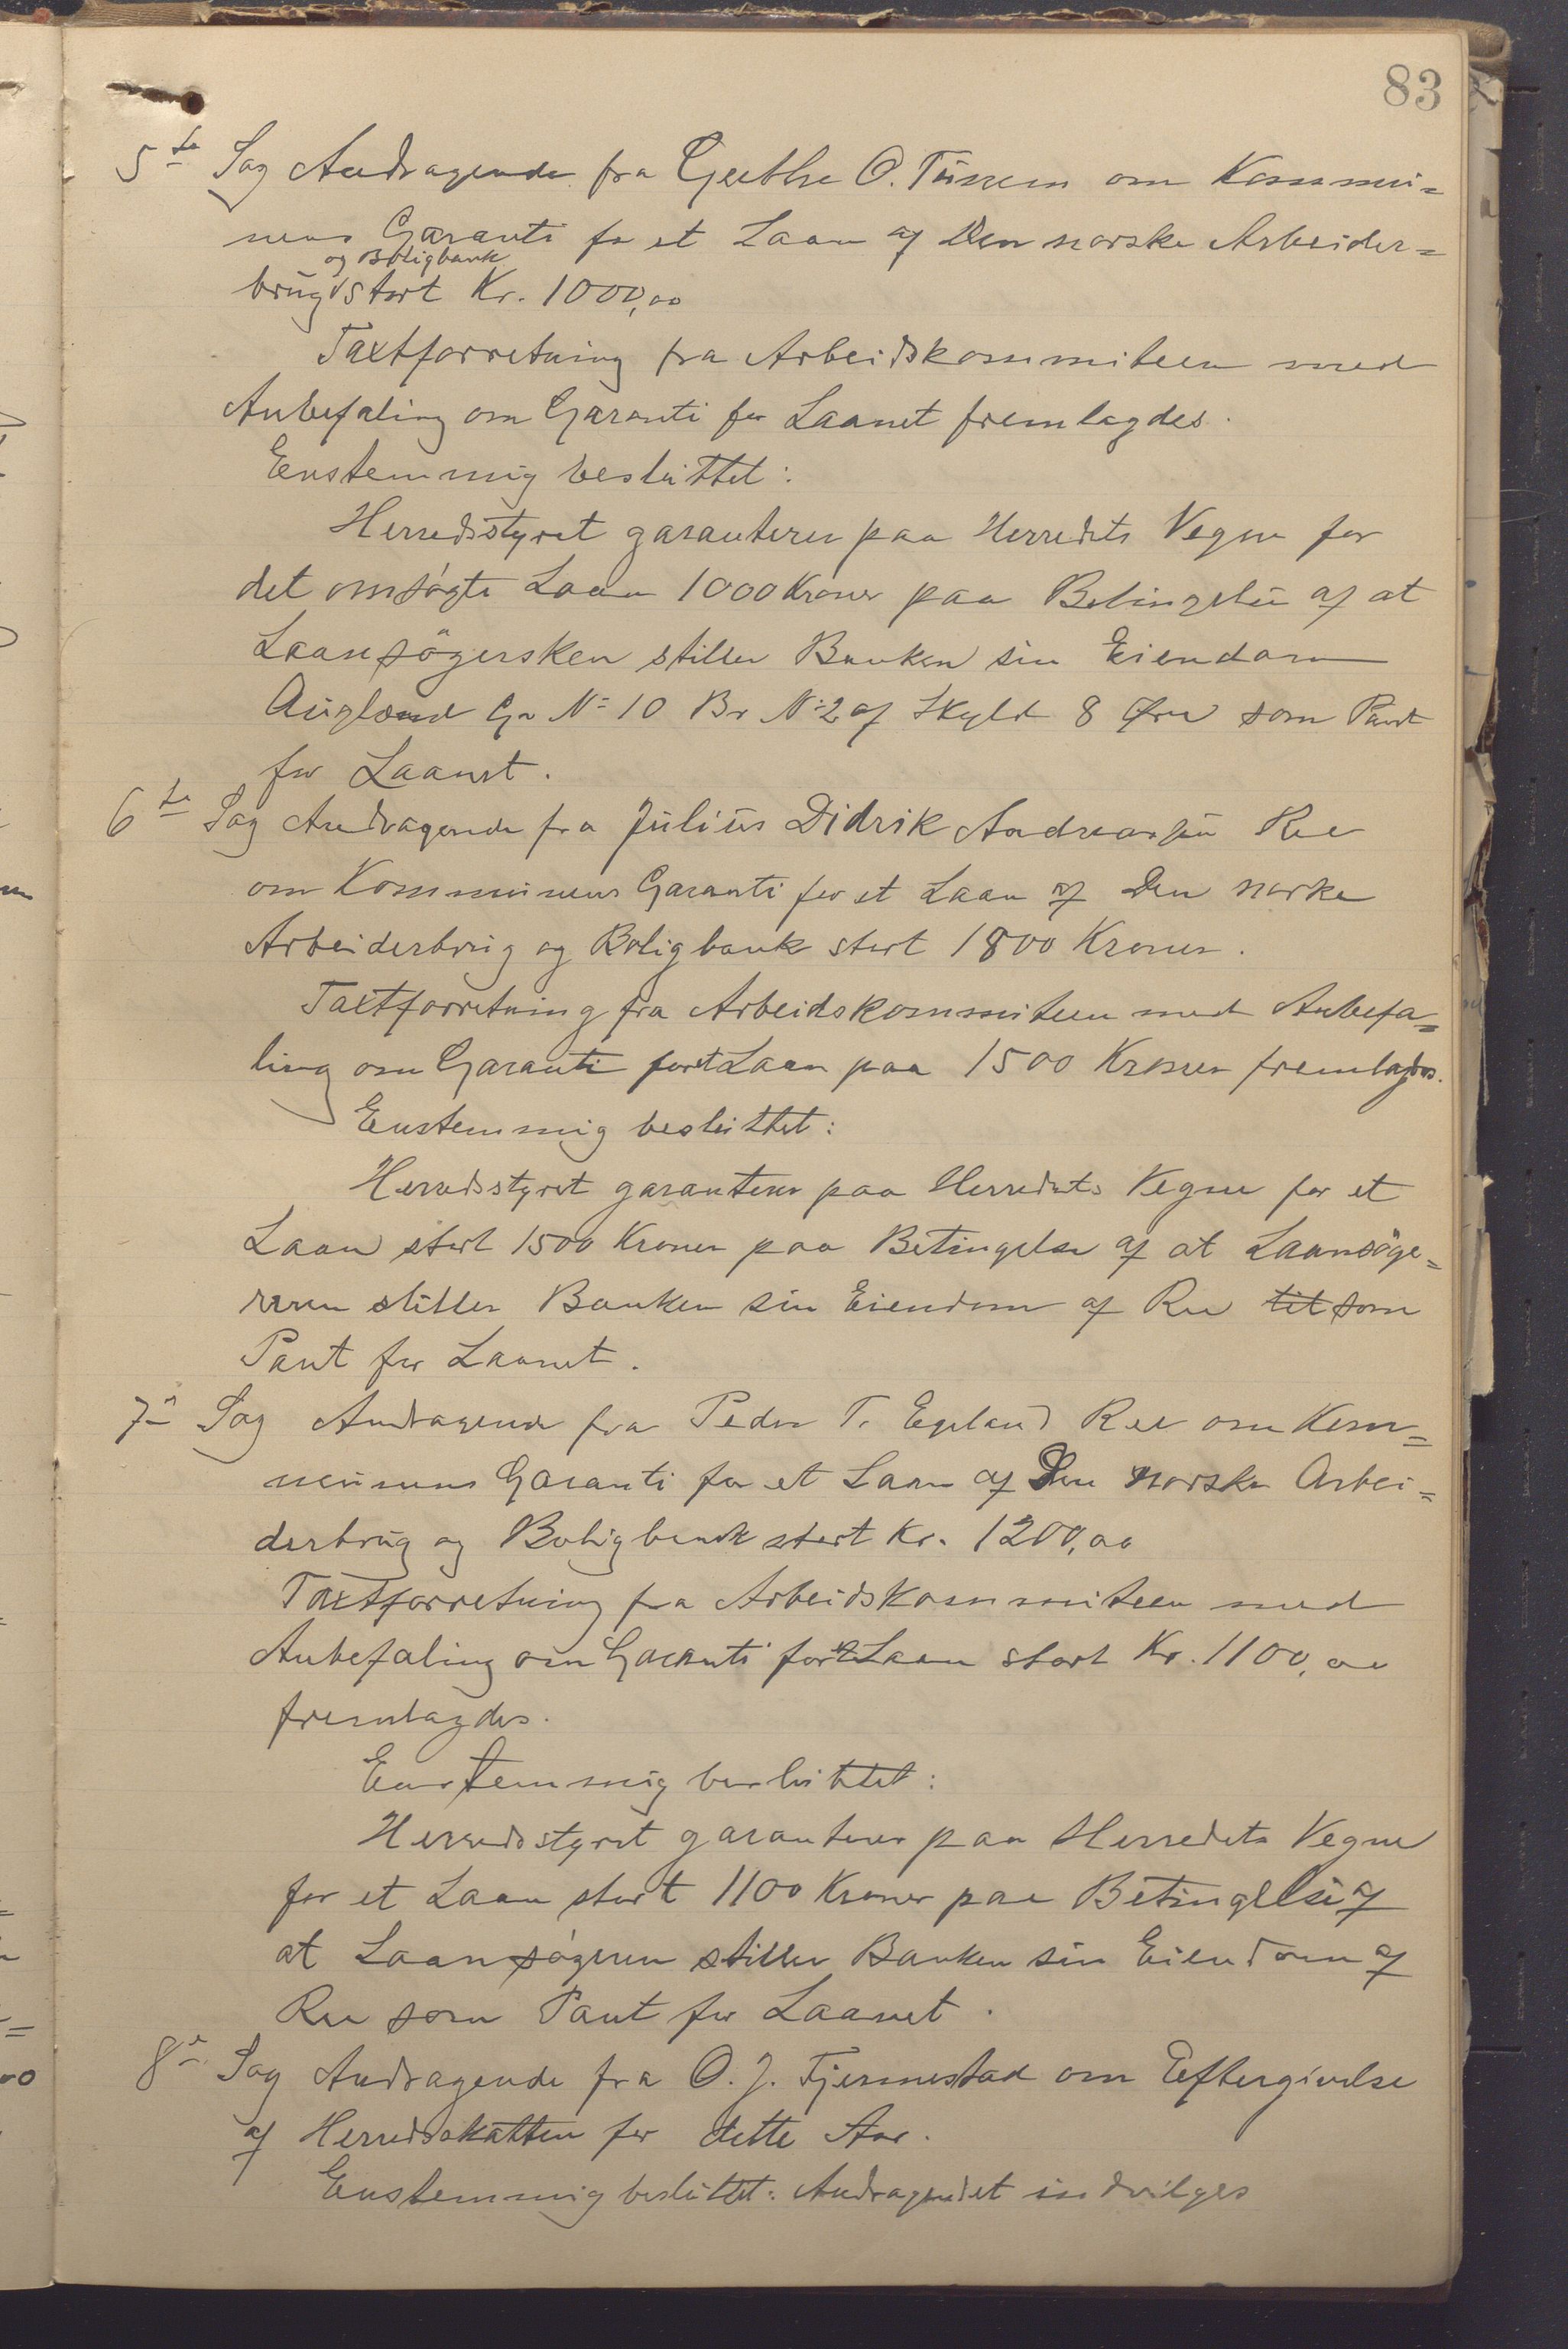 83
5te Sag Andragende fra Gerthe O. Tunem om Kommu=
nens Garanti for et Laan af Den norske Arbeider=
og Boligbank
brug stort Kr. 1000,00
Taxtforretning fra Arbeidskommiteen med
Anbefaling om Garanti for Laanet fremlagdes.
Enstemmig besluttet:
Herredsstyret garanterer paa Herredets Vegne for
det omsøgte Laan 1000 Kroner paa Betingelse af at
Laansøgersken stiller Banken sin Eiendom
Augland Gr No 10 Br No 2 af Skyld 8 Øre som Pant
for Laanet.
6te Sag Andragende fra Julius Didrik Andreassen Ree
om Kommunens Garanti for et Laan af Den norke
Arbeiderbrug og Boligbank stort 1800 Kroner.
Taxtforretning fra Arbeidskommiteen med Anbefa=
ling om Garanti for et Laan paa 1500 Kroner fremlagdes.
Enstemmig besluttet:
Herredsstyret garanterer paa Herredets Vegne for et
Laan stort 1500 Kroner paa Betingelse af at Laansøge=
reren stiller Banken sin Eiendom af Ree til som
Pant for Laanet.
7de Sag Andragende fra Peder T. Egeland Ree om Kom=
munens Garanti for et Laan af Den norske Arbei=
derbrug og Boligbank stort Kr. 1200,00
Taxtforretning fra Arbeidskommiteen med
Anbefaling om Garanti for et Laan stort Kr. 1100,00
fremlagdes.
Enstemmig besluttet:
Herredsstyret garanterer paa Herredets Vegne
for et Laan stort 1100 Kroner paa Betingelse af
at Laansøgeren stiller Banken sin Eiendom af
Ree som Pant for Laanet.
8de Sag Andragende fra O. J. Tjermestad om Eftergivelse
af Herredsskatten for dette Aar.
Enstemmig besluttet: Andragendet indvilges